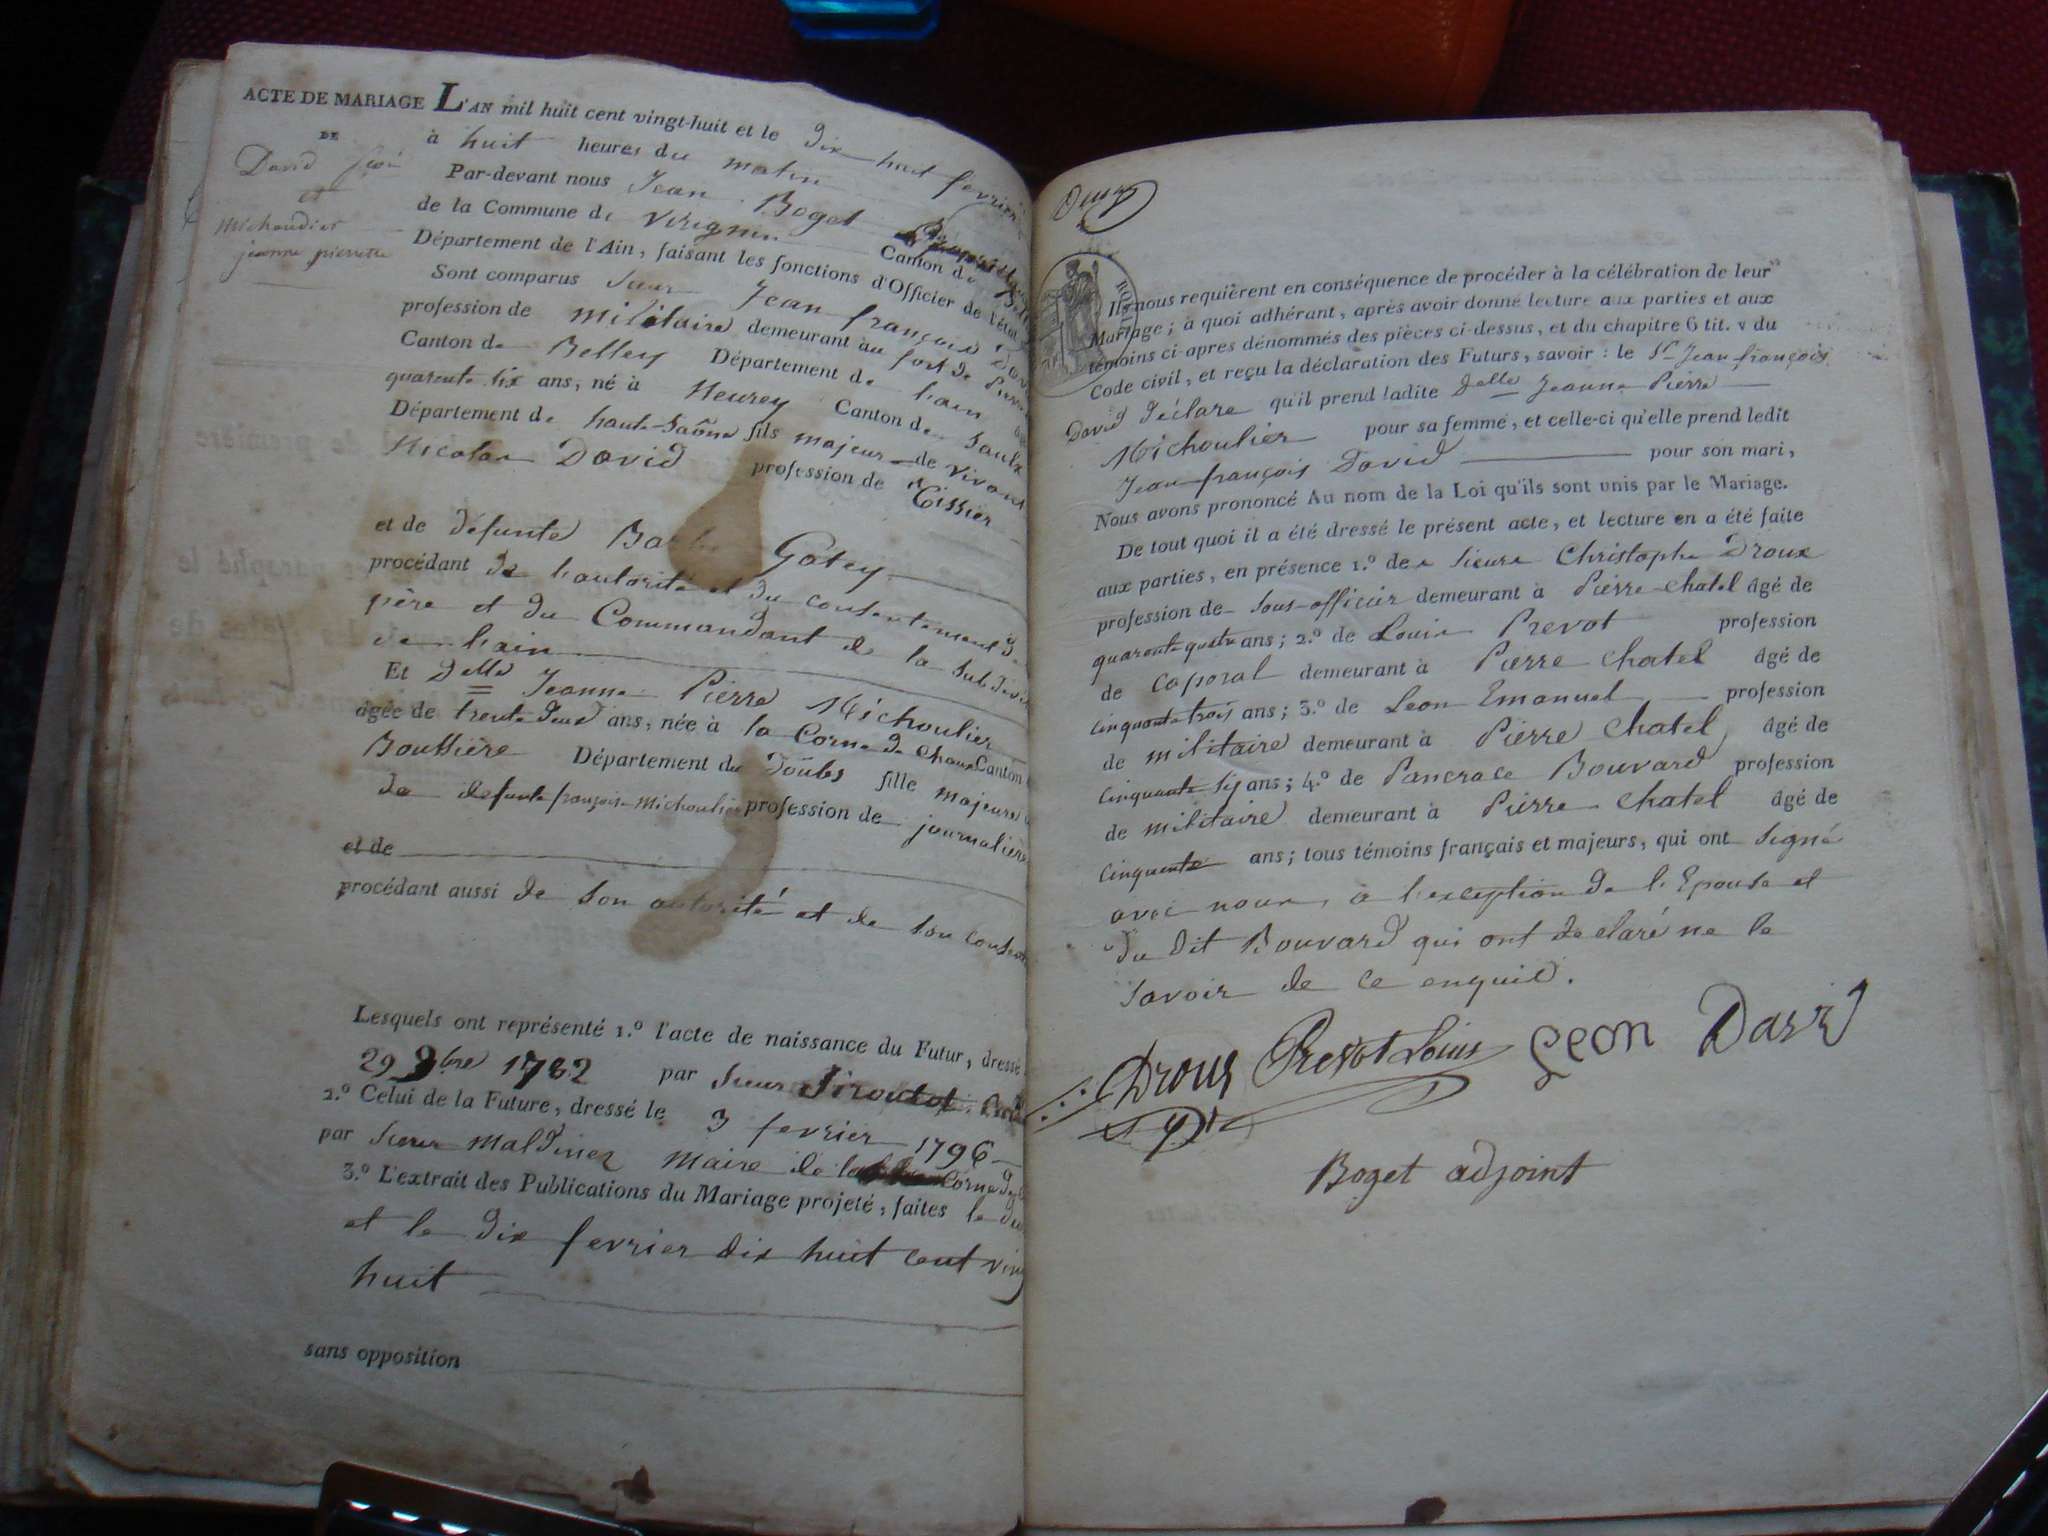 ACTE DE MARIAGE
DE
David
et
Michoudier
jeanne pierrette
L'AN mil huit cent vingt-huit et le dix huit fevrier
à huit heures du matin
Par-devant nous Jean Boget
de la Commune de Virignin Canton de
Département de l'Ain, faisant les fonctions d'Officier de l'état
Sont comparus Sieur Jean françois
profession de militaire demeurant au fort de
Canton de Belley Département de lain
quarente six ans, né à Neurey Canton de Saulx
Département de haute-Saône fils majeur de vivant
Nicolas David profession de Tissier
et de défunte Gotey
procédant de l'autorité et du consentement
père et du Commandant de la
de lain
Et Delle Jeanne Pierre Michoulier
âgée de trente deux ans, née à la Corne de Chaux Canton
Boussière Département du Doubs fille majeure
de defunte françoise Michoulier profession de journalière
et de
procédant aussi de son autorité et de son
Lesquels ont représenté 1.º l'acte de naissance du Futur, dressé
29 9bre 1782 par Sieur Siroutot
2.º Celui de la Future, dressé le 3 fevrier 1796
par Sieur Maldiney Maire de la Corne
3.º L'extrait des Publications du Mariage projeté, faites le
et le dix fevrier dix huit cent
huit
sans opposition
Deux
Ils nous requièrent en conséquence de procéder à la célébration de leur
Mariage; à quoi adhérant, après avoir donné lecture aux parties et aux
témoins ci-apres dénommés des pièces ci-dessus, et du chapitre 6 tit. v du
Code civil, et reçu la déclaration des Futurs, savoir : le Sr Jean françois
David déclare qu'il prend ladite Delle Jeanne Pierre
Michoulier pour sa femme, et celle-ci qu'elle prend ledit
Jean françois David pour son mari,
Nous avons prononcé Au nom de la Loi qu'ils sont unis par le Mariage.
De tout quoi il a été dressé le présent acte, et lecture en a été faite
aux parties, en présence 1.º de Sieurs Christophe Droux
profession de Sous-officier demeurant à Pierre-chatel âgé de
quarente quatre ans; 2.º de Louis Prevot profession
de Caporal demeurant à Pierre chatel âgé de
cinquante trois ans; 3.º de Leon Emanuel profession
de militaire demeurant à Pierre Chatel âgé de
Cinquante ans; 4.º de Pancrace Bouvard profession
de militaire demeurant à Pierre Chatel âgé de
Cinquente ans; tous témoins français et majeurs, qui ont Signé
avec nous, à l'exception de l'Epouse et
du dit Bouvard qui ont declaré ne le
Savoir de ce enquis.
Droux Prevot Louis Leon David
Boget adjoint